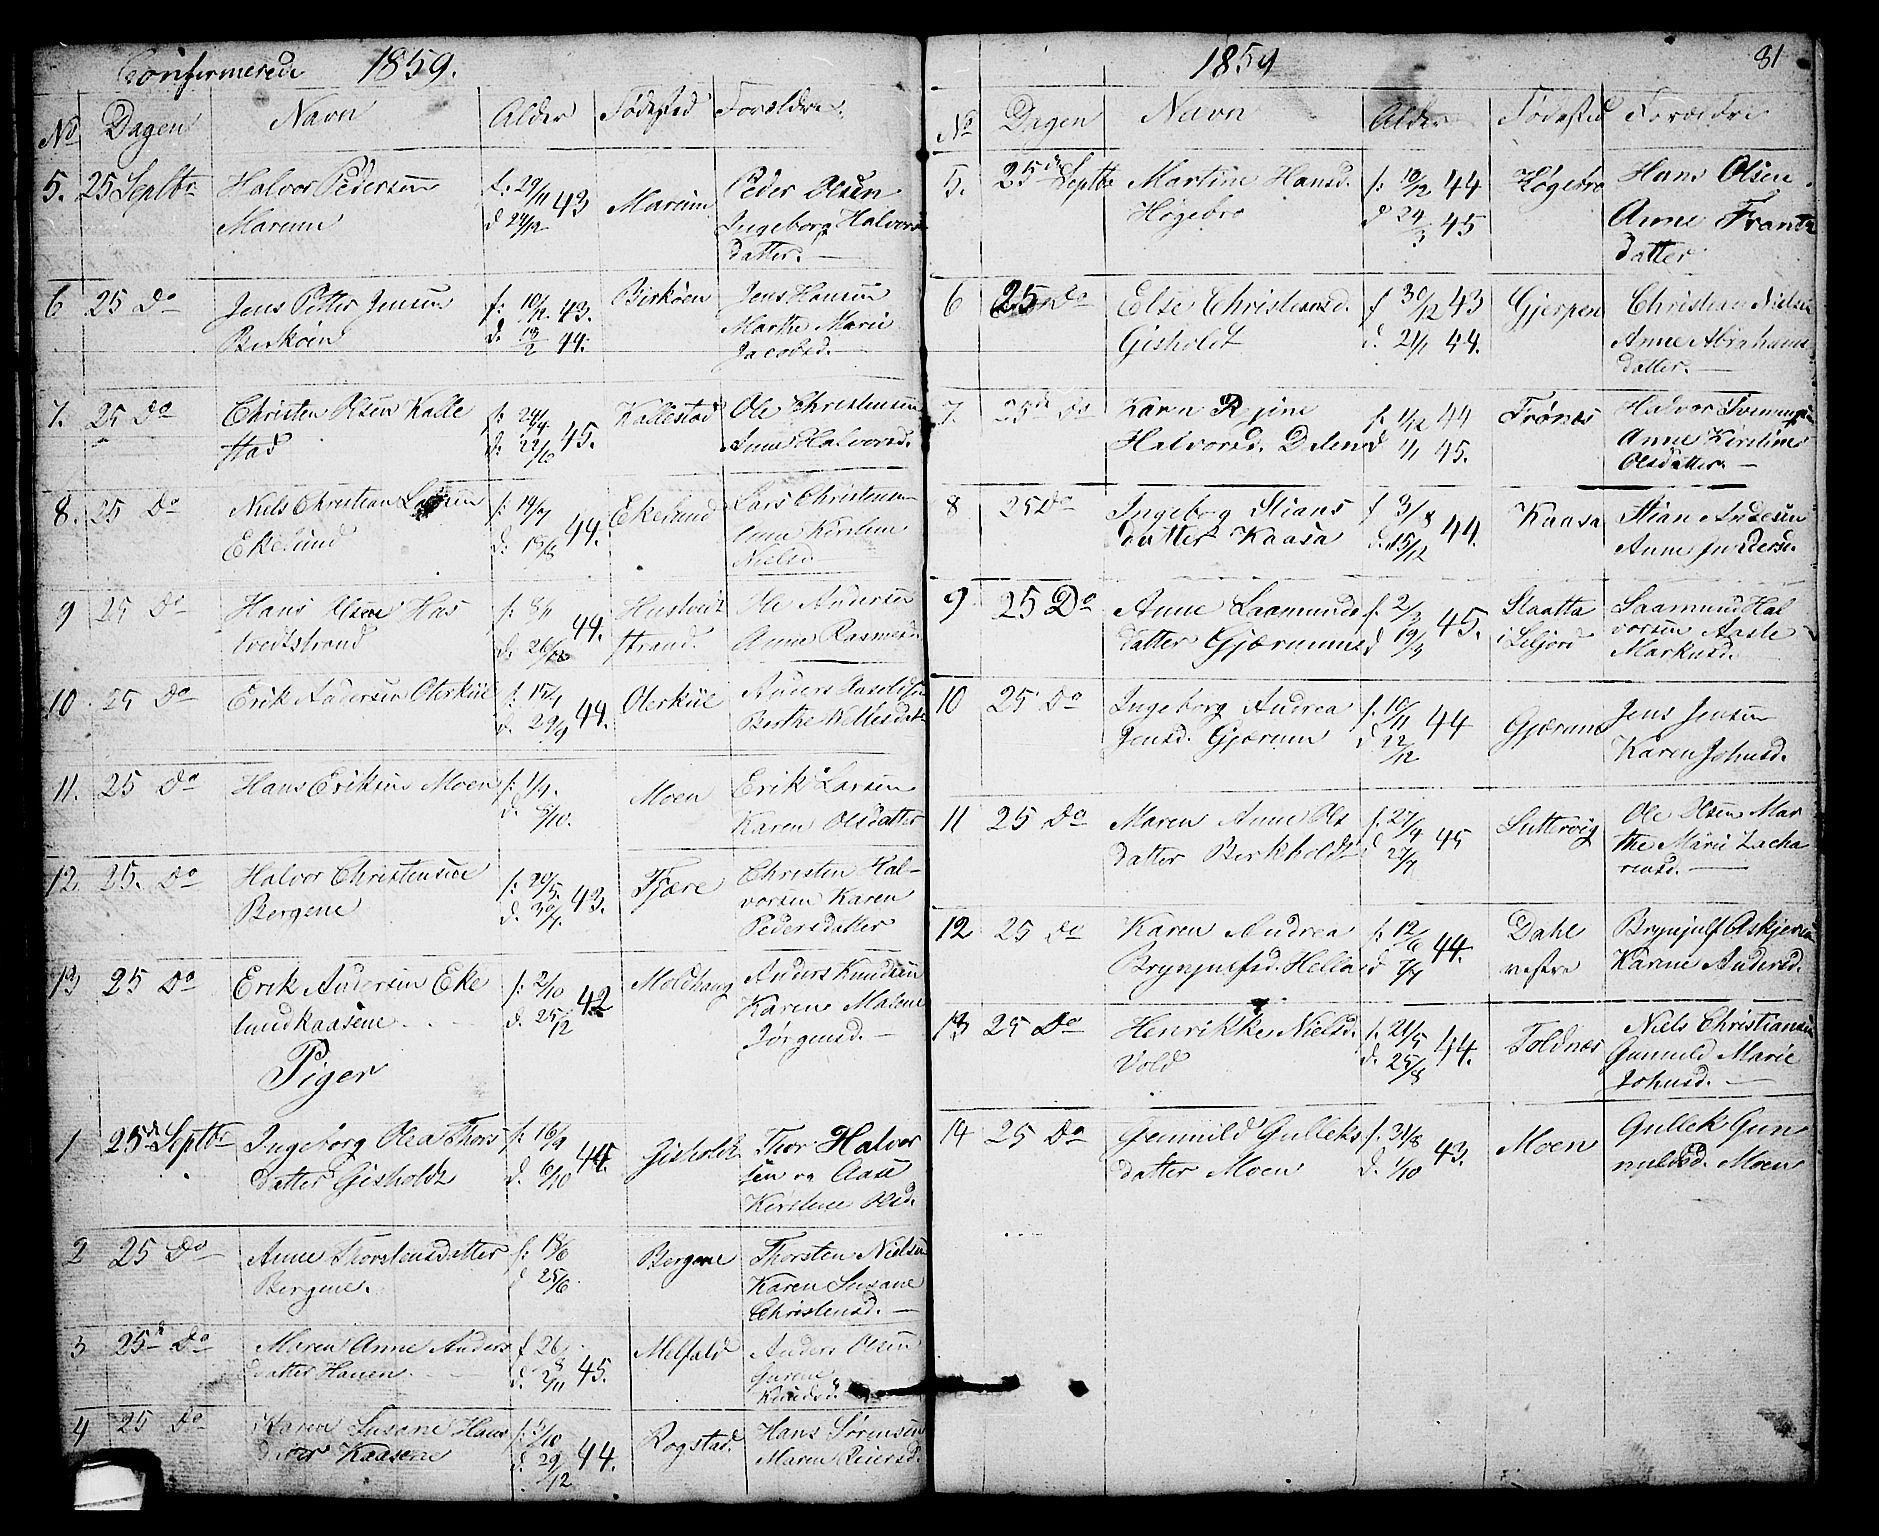 Confirmerede 1859.
No Dagen Navn Alder Fødested Forældre
5. 25 Septbr Halvor Pedersen f: 29/11 43 Marum Peder Olsen
Marum d 24/12 Ingeborg Halvors
datter.
6 25 Do Jens Petter Jensen f: 10/12 43. Birkøen Jens Hansen
Birkøen d. 18/2 44. Marthe Marie
Jacobsd.
7. 25 Do Christen Olsen Kalle f: 24/9 45. Kallestad Ole Christensen
stad d. 22/10 Anne Halvorsd.
8. 25 Do Niels Christian Larsen f: 19/7 44. Ekelund Lars Christensen
Ekelund d: 18/8 Anne Kirstine
Nielsd.
9 25 Do Hans Olsen Has f: 8/11 44. Hustvedt Ole Andersen
tvedtstrand d. 26/12 strand. Anne Rasmusd.
10. 25 Do Erik Andersen Oterkiil f. 15/9 44. Oterkiil Anders
d. 29/9 Berthe Kettilsdatr
11. 25 Do Hans Eriksen Moen f: 1/9. Moen Erik Larsen
d. 8/10. Karen Olsdatter
12. 25. Do Halvor Christensen f: 20/5 43. Fjære Christen Hal-
Bergene d. 30/7 vorsen Karen
Pedersdatter
13 25 Do Erik Andersen Eke f: 2/10 42 Moldhaug Anders Knudsen
lundkaasene d. 25/12 Karen Malene
Jørgensd.
Piger
1 25de Septbr Ingeborg Olea Thors f. 16/9 44. Gisholdt Thor Halvor
datter Gisholdt d. 6/10 sen og Aase
Kirstine Olsd.
2 25 Do Anne Thorstensdatter f: 18/6 Bergene Thorsten Nielsen
Bergene. d 25/6 Karen Susane
Christensd.
3 25de Do Maren Anne Anders f 26/8 45. Melfald Anders Olsen
datter Hauen. d. 2/11 Gurine
Knudsd.
4 25 Do Karen Susane Hans f: 5/10 44. Rogstad. Hans Sørensen
datter Kaasene d. 29/12 Maren Reiersd.
1859 81
No Dagen Navn Alder Fødested Forældre
5. 25de Septbr Martine Hansd. f: 10/12 44 Høgebro Hans Olsen
Høgebro d 24/3 45 Anne Frants
datter
6 25 Do Else Christiansd. f 30/12 43 Gjerpen Christian Nielsen
Gisholdt d. 21/1 44. Anne Abrahams
datter.
7. 25de Do Karen Regine f. 1/12 44 Frønes Halvor
Halvorsd. Dalen d 1/1 45. Anne Kirstine
Olsdatter.
8 25 Do Ingeborg Stians f 3/8 44. Kaasa Stian Andersen
datter Kaasa d. 15/12 Anne
9 25 Do Anne Saamunds f. 2/3 45. Slaatta Saamund Hal
datter Gjærumnes d 19/3 i Seljord vorsen Aasle
Markusd.
10 25 Do Ingeborg Andrea f. 10/11 44 Gjærum Jens Jensen
Jensd. Gjærum d 22/12 Karen Johnsd.
11 25 Do Maren Anne Ols f. 27/4 45 Sutterøig Ole Olsen Mar
datter Berkholdt d 27/7 the Marie Zacha
riasd.
12 25 Do Karen Andrea f. 12/6 44. Dahl Brynjulf Askjersen
Brynjulfsd. Hella d 7/7 vestre Karine Andersd.
13 25 Do Henrikke Nielsd. f. 21/5 44. Foldnæs Niels Christiansen
Vold d. 25/8 Gunnild Marie
Johnsd.
14 25 Do Gunnild Gulleks f. 31/8 43. Moen Gullek Gun
datter Moen d. 1/10 nulfsd. Moen